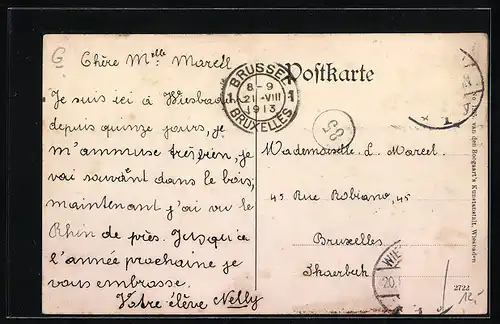 G
Chère Mlle Marcel
Je suis ici à Wiesbaden
depuis quinze jours, je
m'ammuse très bien, je
vai souvant dans le bois,
maintenant j'ai vu le
Rhin de près. Jusqu'ce
l'année prochaine je
vous embrasse.
Votre élève Nelly
BRUSSEL
1 8-9 1
21 VIII
1913
BRUXELLES
Postkarte
85
Mademoiselle L. Marcel
45 Rue Robiano, 45
Bruxelles
Skaerbeck
WIE
20.
van den Boogaart's Kunstanstalt, Wiesbaden
2722
12,-